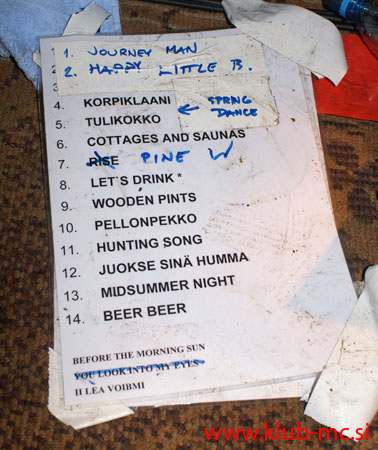 1. JOURNEY MAN
2. HAPPY LITTLE B.
4. KORPIKLAANI
5 TULIKOKKO ← SPRNG DANCE
6 COTTAGES AND SAUNAS
7 RISE PINE W
8 LET'S DRINK *
9 WOODEN PINTS
10. PELLONPEKKO
11. HUNTING SONG
12. JUOKSE SINÄ HUMMA
13. MIDSUMMER NIGHT
14. BEER BEER
BEFORE THE MORNING SUN
YOU LOOK INTO MY EYES
II LEA VOIBMI
www.klub-mc.si